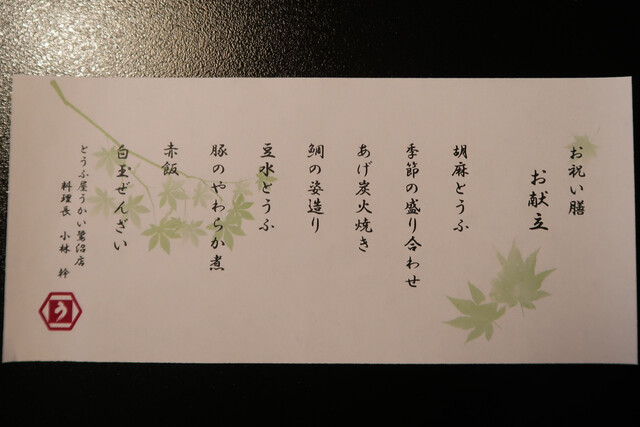 お祝い膳
お献立
胡麻とうふ
季節の盛り合わせ
あげ炭火焼き
鯛の姿造り
豆水とうふ
豚のやわらか煮
赤飯
白玉ぜんざい
とうふ屋うかい鷺沼店
料理長 小林 幹
う